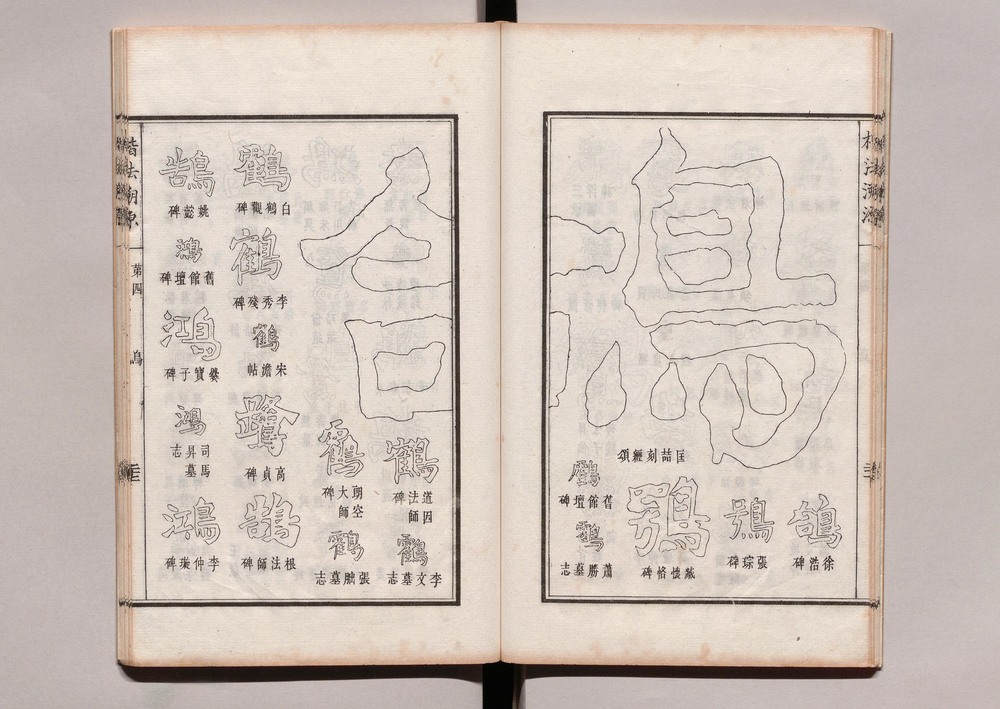 楷法溯源
鴿
匡喆刻經頌
鴿
徐浩碑
張琮碑
鶚
臧懷恪碑
舊館壇碑
蕭勝墓志
鶴
道因法師碑
鸖
李文墓志
鸖
朗空大師碑
鸖
墓志
鸖
白鶴觀碑
鶴
李秀殘碑
鶴
宋儋帖
鷺
高貞碑
鵠
根法師碑
鵠
姚懿碑
鴻
舊館壇碑
鴻
爨寶子碑
鴻
司馬昇墓志
鴻
李仲璇碑
楷法溯源
第四
鳥